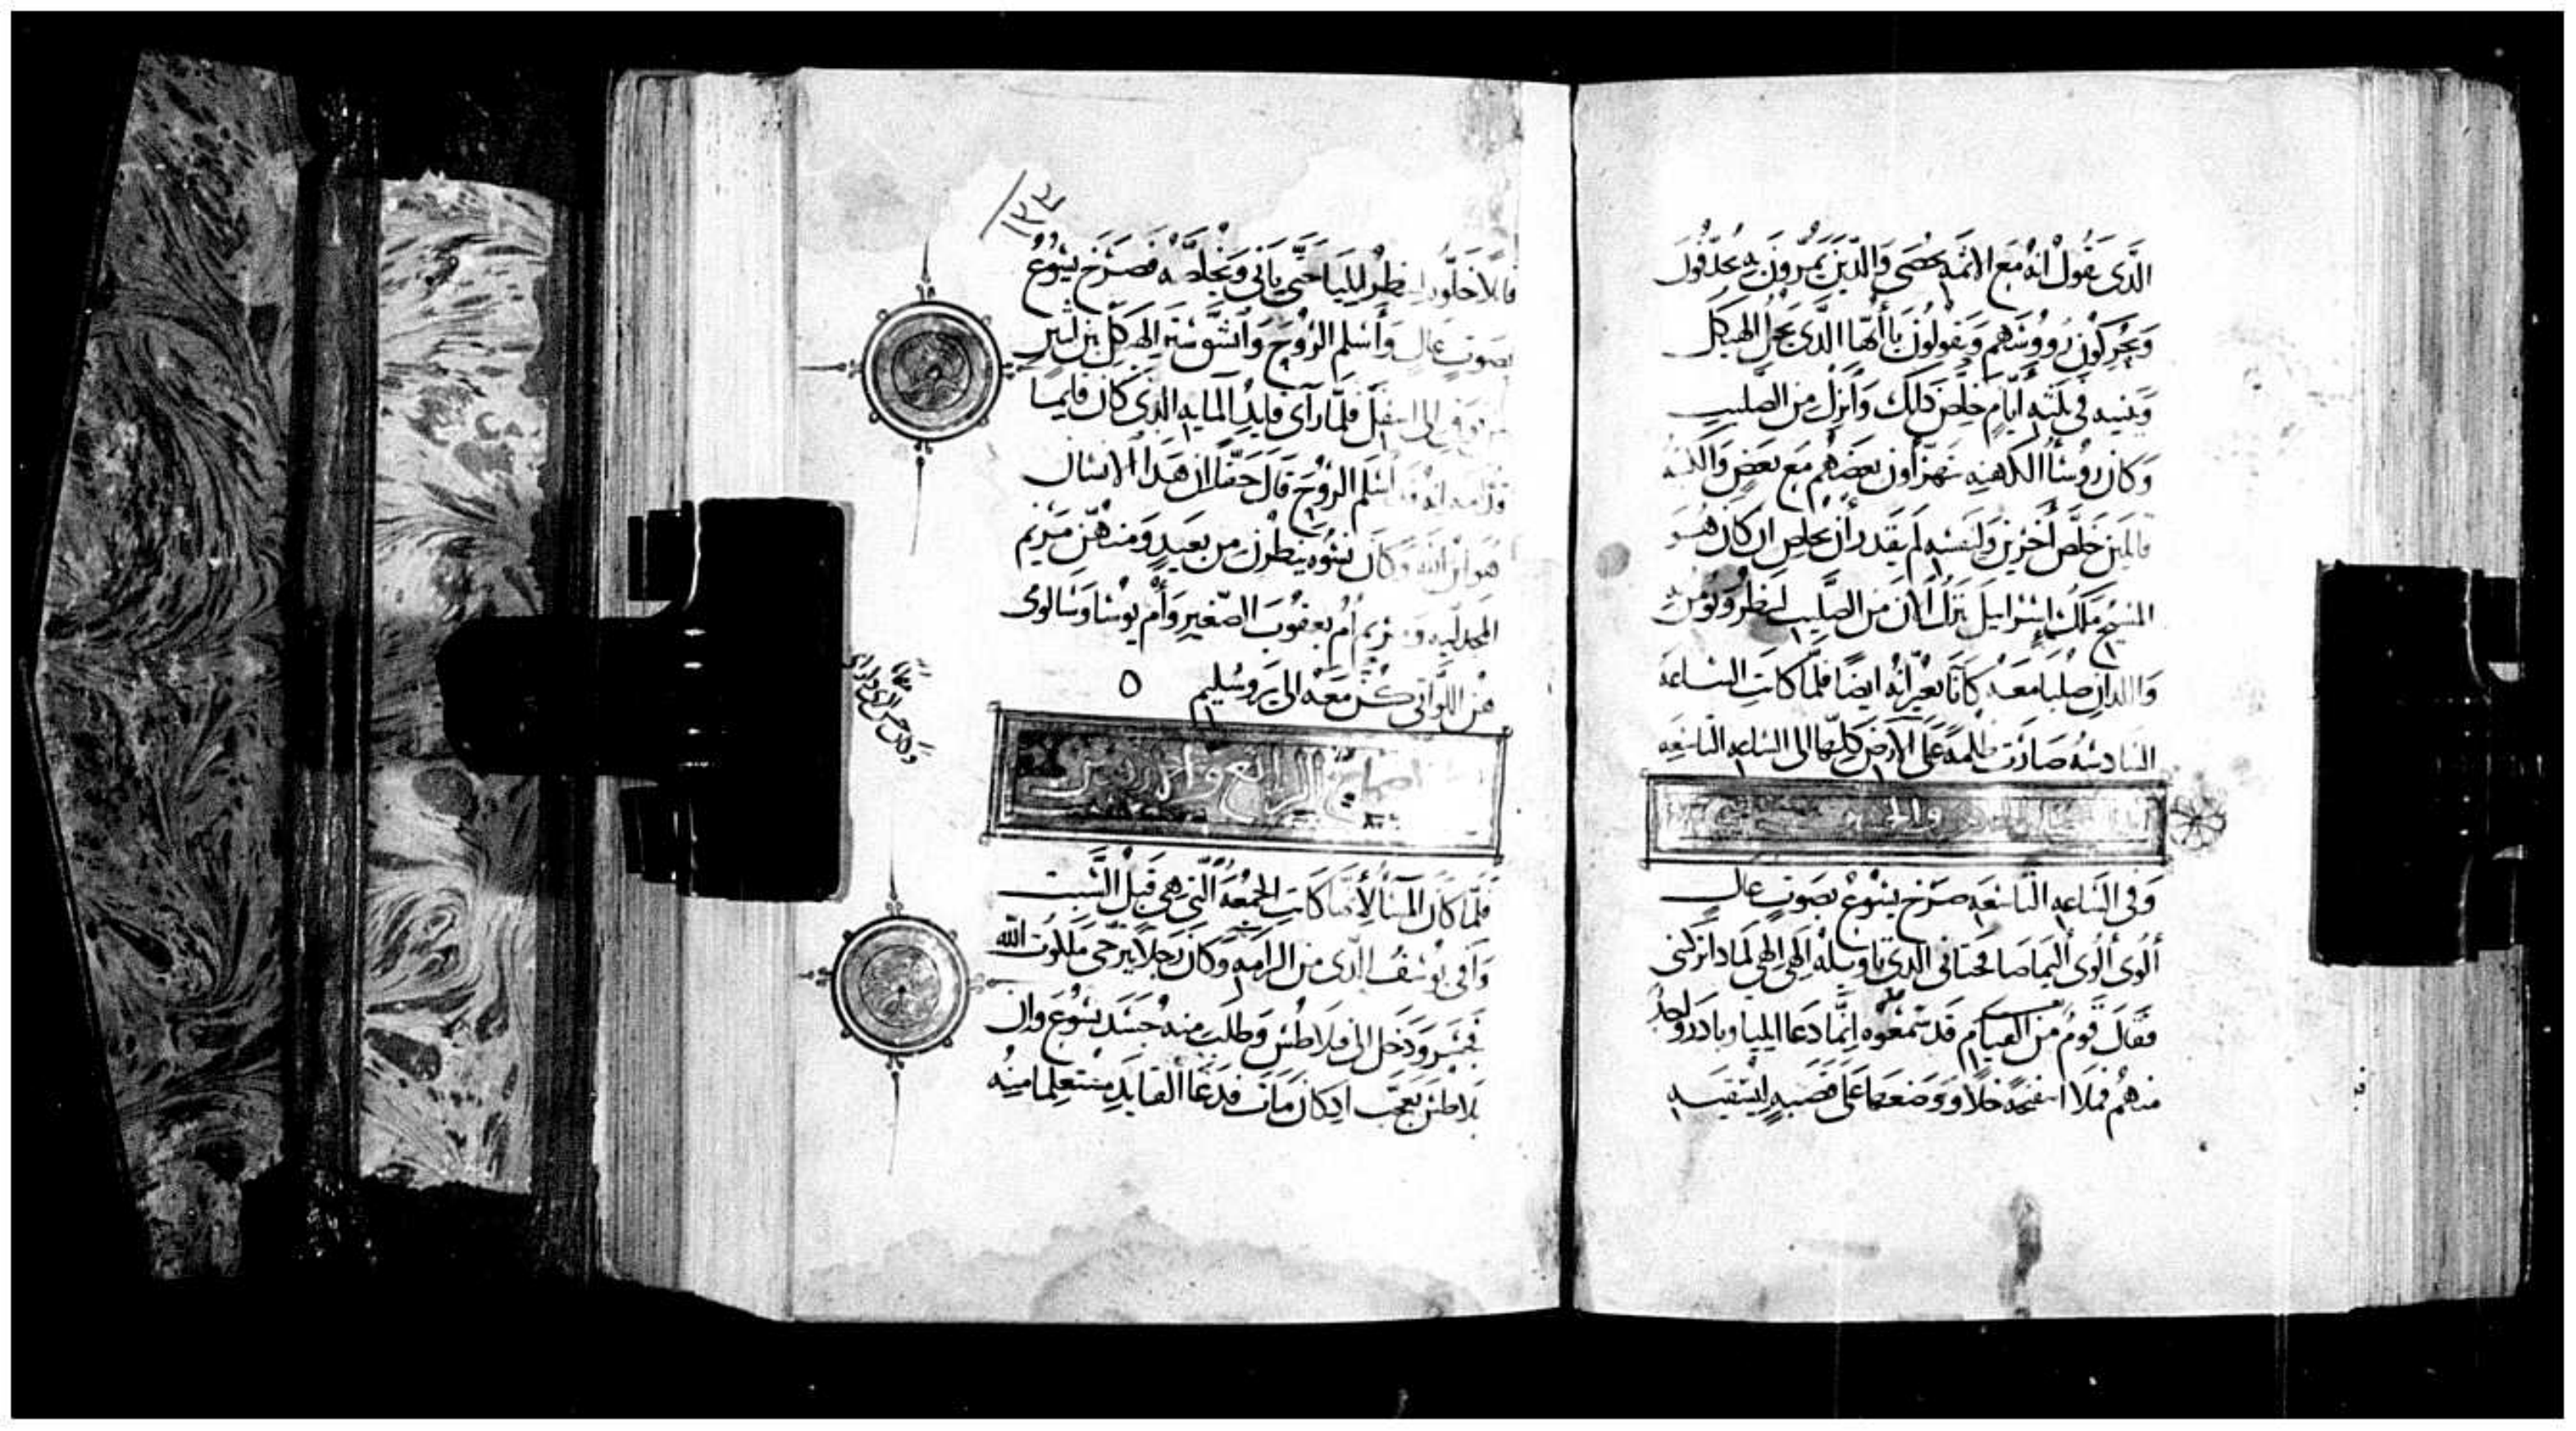 الذى يقول انه مع الاثمه يحصى والذين يمرون به يجدفون
ويحركون رووسهم ويقولون يا أيها الذى يحل الهيكل
ويبنيه فى ثلثه أيام خلص ذاتك وانزل من الصليب
وكان روسا الكهنه يتهزأون بعضهم مع بعض والكتبه
قايلين خلص أخرين ولنفسه لم يقدر أن يخلص ان كان هو
المسيح ملك إسرايل ينزل الان من الصليب لننظر ونومن به
واللذان صلبا معه كانا يعيرانه ايضا فلما كانت الساعه
السادسه صارت ظلمه على الارض كلها الى الساعه التاسعه
وفى الساعه التاسعه صرخ يسوع بصوت عال
ألوى ألوى أليما صافختانى الذى تاويله إلهى إلهى لماذا تركتنى
فقال قوم من القيام قد سمعوه إنما دعا ايليا وبادر واحد
منهم فملا اسفنجه خلا ووضعها على قصبه ليسقيه
١٢٤
قايلا خلوه لننظر ايليا حتى ياتى ويخلصه فصرخ يسوع
بصوت عال وأسلم الروح وانشق ستر الهيكل بين اثنين
من فوق الى اسفل فلما رآى قايد المايه الذى كان قايما
قدامه انه قد أسلم الروح قال حقا ان هذا الانسان
هو ابن الله وكان نسوه ينظرن من بعيد ومنهن مريم
المجدليه ومريم أم يعقوب الصغير وأم يوسا وسالومى
هن اللواتى كن معه الى يروسليم ٥
الرابع
فلما كان المسا لأنها كانت الجمعه التى هى قبل السبت
وافى يوسف الذى من الرامه وكان رجلا يرجى ملكوت الله
فجسر ودخل الى فيلاطس وطلب منه جسد يسوع وان
بلاطس تعجب اذ كان مات فدعا القايد مستعلما منه